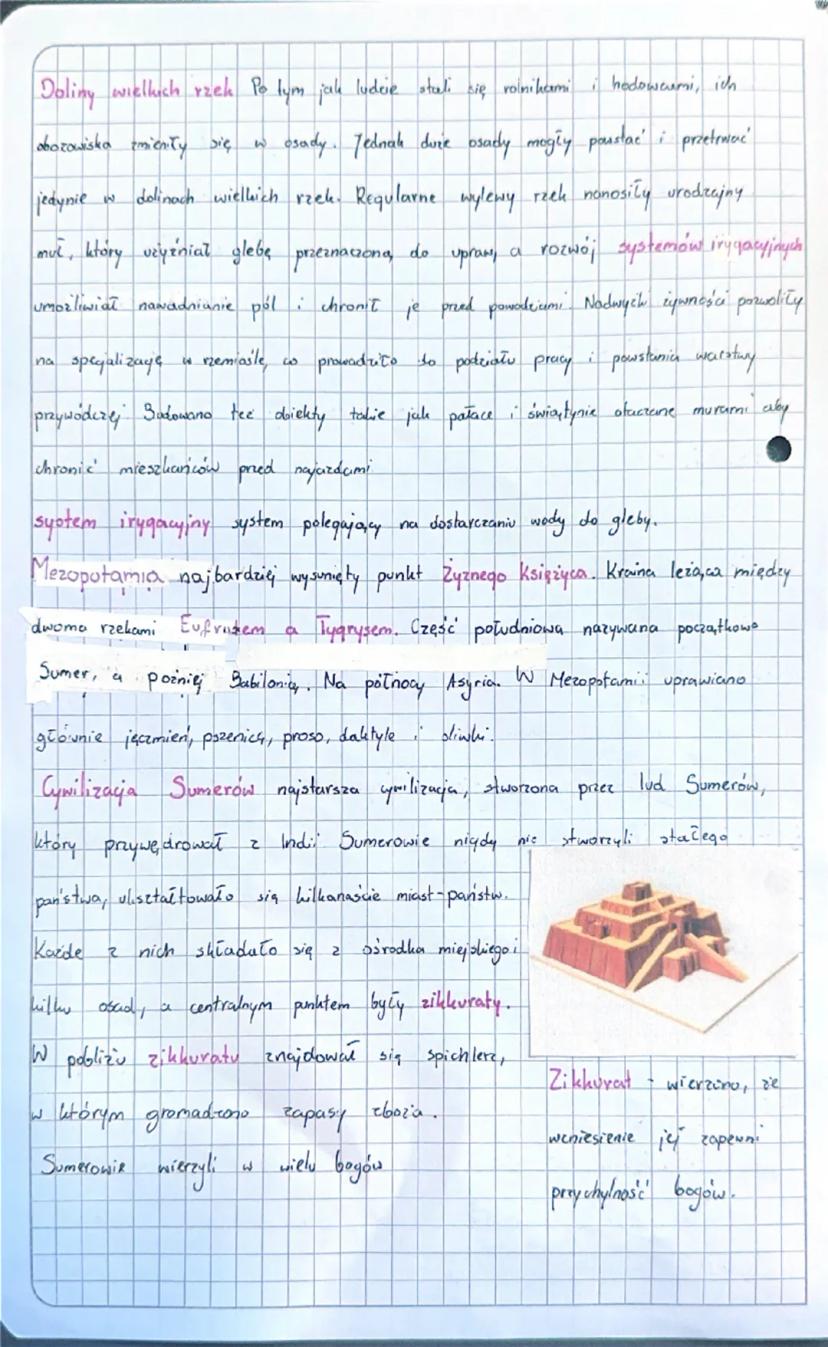 Doliny wielkich rzek Po tym jak ludzie stali się rolnikami i hodowcami, ich
obozowiska zmieniły się w osady. Jednak duże osady mogły powstać i przetrwać
jedynie w dolinach wielkich rzek. Regularne wylewy rzek nanosiły urodzajny
muł, który użyźniał glebę przeznaczoną do upraw, a rozwój systemów irygacyjnych
umożliwiał nawadnianie pól i chronił je przed powodziami. Nadwyżki żywności pozwoliły
na specjalizację w rzemiośle, co prowadziło do podziału pracy i powstania warstwy
przywódczej Budowano też obiekty takie jak pałace i świątynie otaczane murami aby
chronić mieszkańców przed najazdami
system irygacyjny system polegający na dostarczaniu wody do gleby.
Mezopotamia najbardziej wysunięty punkt Żyznego Księżyca. Kraina leżąca między
dwoma rzekami Eufratem a Tygrysem. Część południowa nazywana początkowo
Sumer, a poźniej Babilonią. Na północy Asyria. W Mezopotamii uprawiano
głównie jęczmień, pszenicę, proso, daktyle i śliwki.
Cywilizacja Sumerów najstarsza cywilizacja, stworzona przez lud Sumerów,
który przywędrował z Indii Sumerowie nigdy nie stworzyli stałego
państwa, ukształtowało się kilkanaście miast-państw.
Każde z nich składało się z ośrodka miejskiego i
kilku osad, a centralnym punktem były zikkuraty.
W pobliżu zikkuratu znajdował się spichlerz,
w którym gromadzono zapasy zboża.
Sumerowie wierzyli w wielu bogów
Zikkurat - wierzono, że
wzniesienie jej zapewni
przychylność bogów.